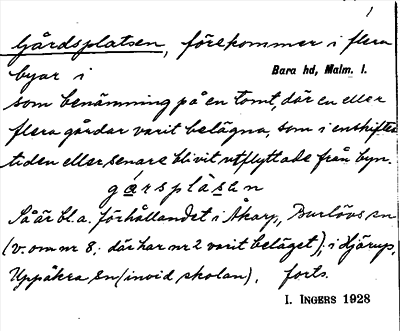 1
Gårdsplatsen, förekommer i flera
byar i Bara hd, Malm. l.
som benämning på en tomt, där en eller
flera gårdar varit belägna, som i enskiftes
tiden eller senare blivit utflyttade från byn.
gårsplásən
Så är bl.a. förhållandet i Åkarp, Burlövs sn
(v. om nr 8, där har nr 2 varit beläget), i Hjärup,
Uppåkra sn (invid skolan). forts.
I. INGERS 1928